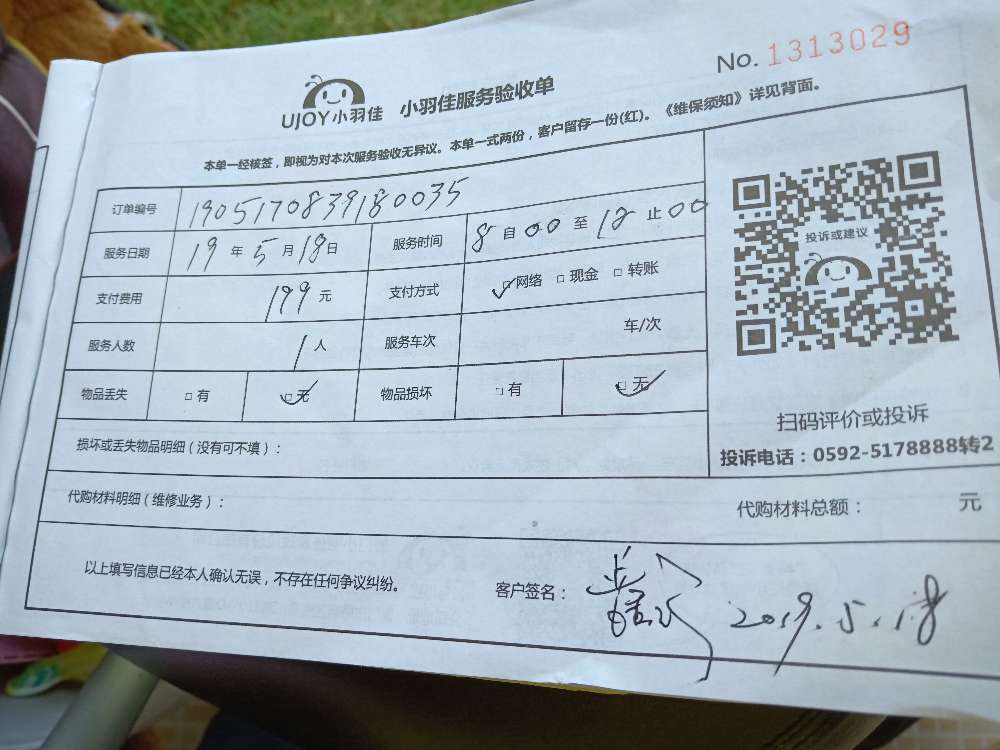 No. 1313029
UJOY小羽佳 小羽佳服务验收单
本单一经核签，即视为对本次服务验收无异议。本单一式两份，客户留存一份(红)。《维保须知》详见背面。
订单编号 1905170839180035
服务日期 19年5月18日 服务时间 8自00至12止00
支付费用 199元 支付方式 网络 现金 转账
服务人数 1人 服务车次 车/次
物品丢失 有 无 物品损坏 有 无
投诉或建议
扫码评价或投诉
投诉电话：0592-5178888转2
损坏或丢失物品明细（没有可不填）：
代购材料明细（维修业务）： 代购材料总额： 元
以上填写信息已经本人确认无误，不存在任何争议纠纷。 客户签名： 2019.5.18